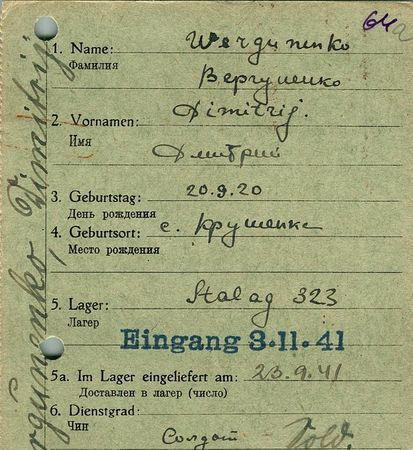 64a
1. Name: Wergunenko
Фамилия
Вергуненко
2. Vornamen: Dimitrij.
Имя
Дмитрий
3. Geburtstag: 20.9.20
День рождения
4. Geburtsort: с. Крушенка
Место рождения
5. Lager: Stalag 323
Лагер
Eingang 3.11.41
5a. Im Lager eingeliefert am: 23.9.41
Доставлен в лагер (число)
6. Dienstgrad:
Чин
Солдат Sold.
Dimitrij